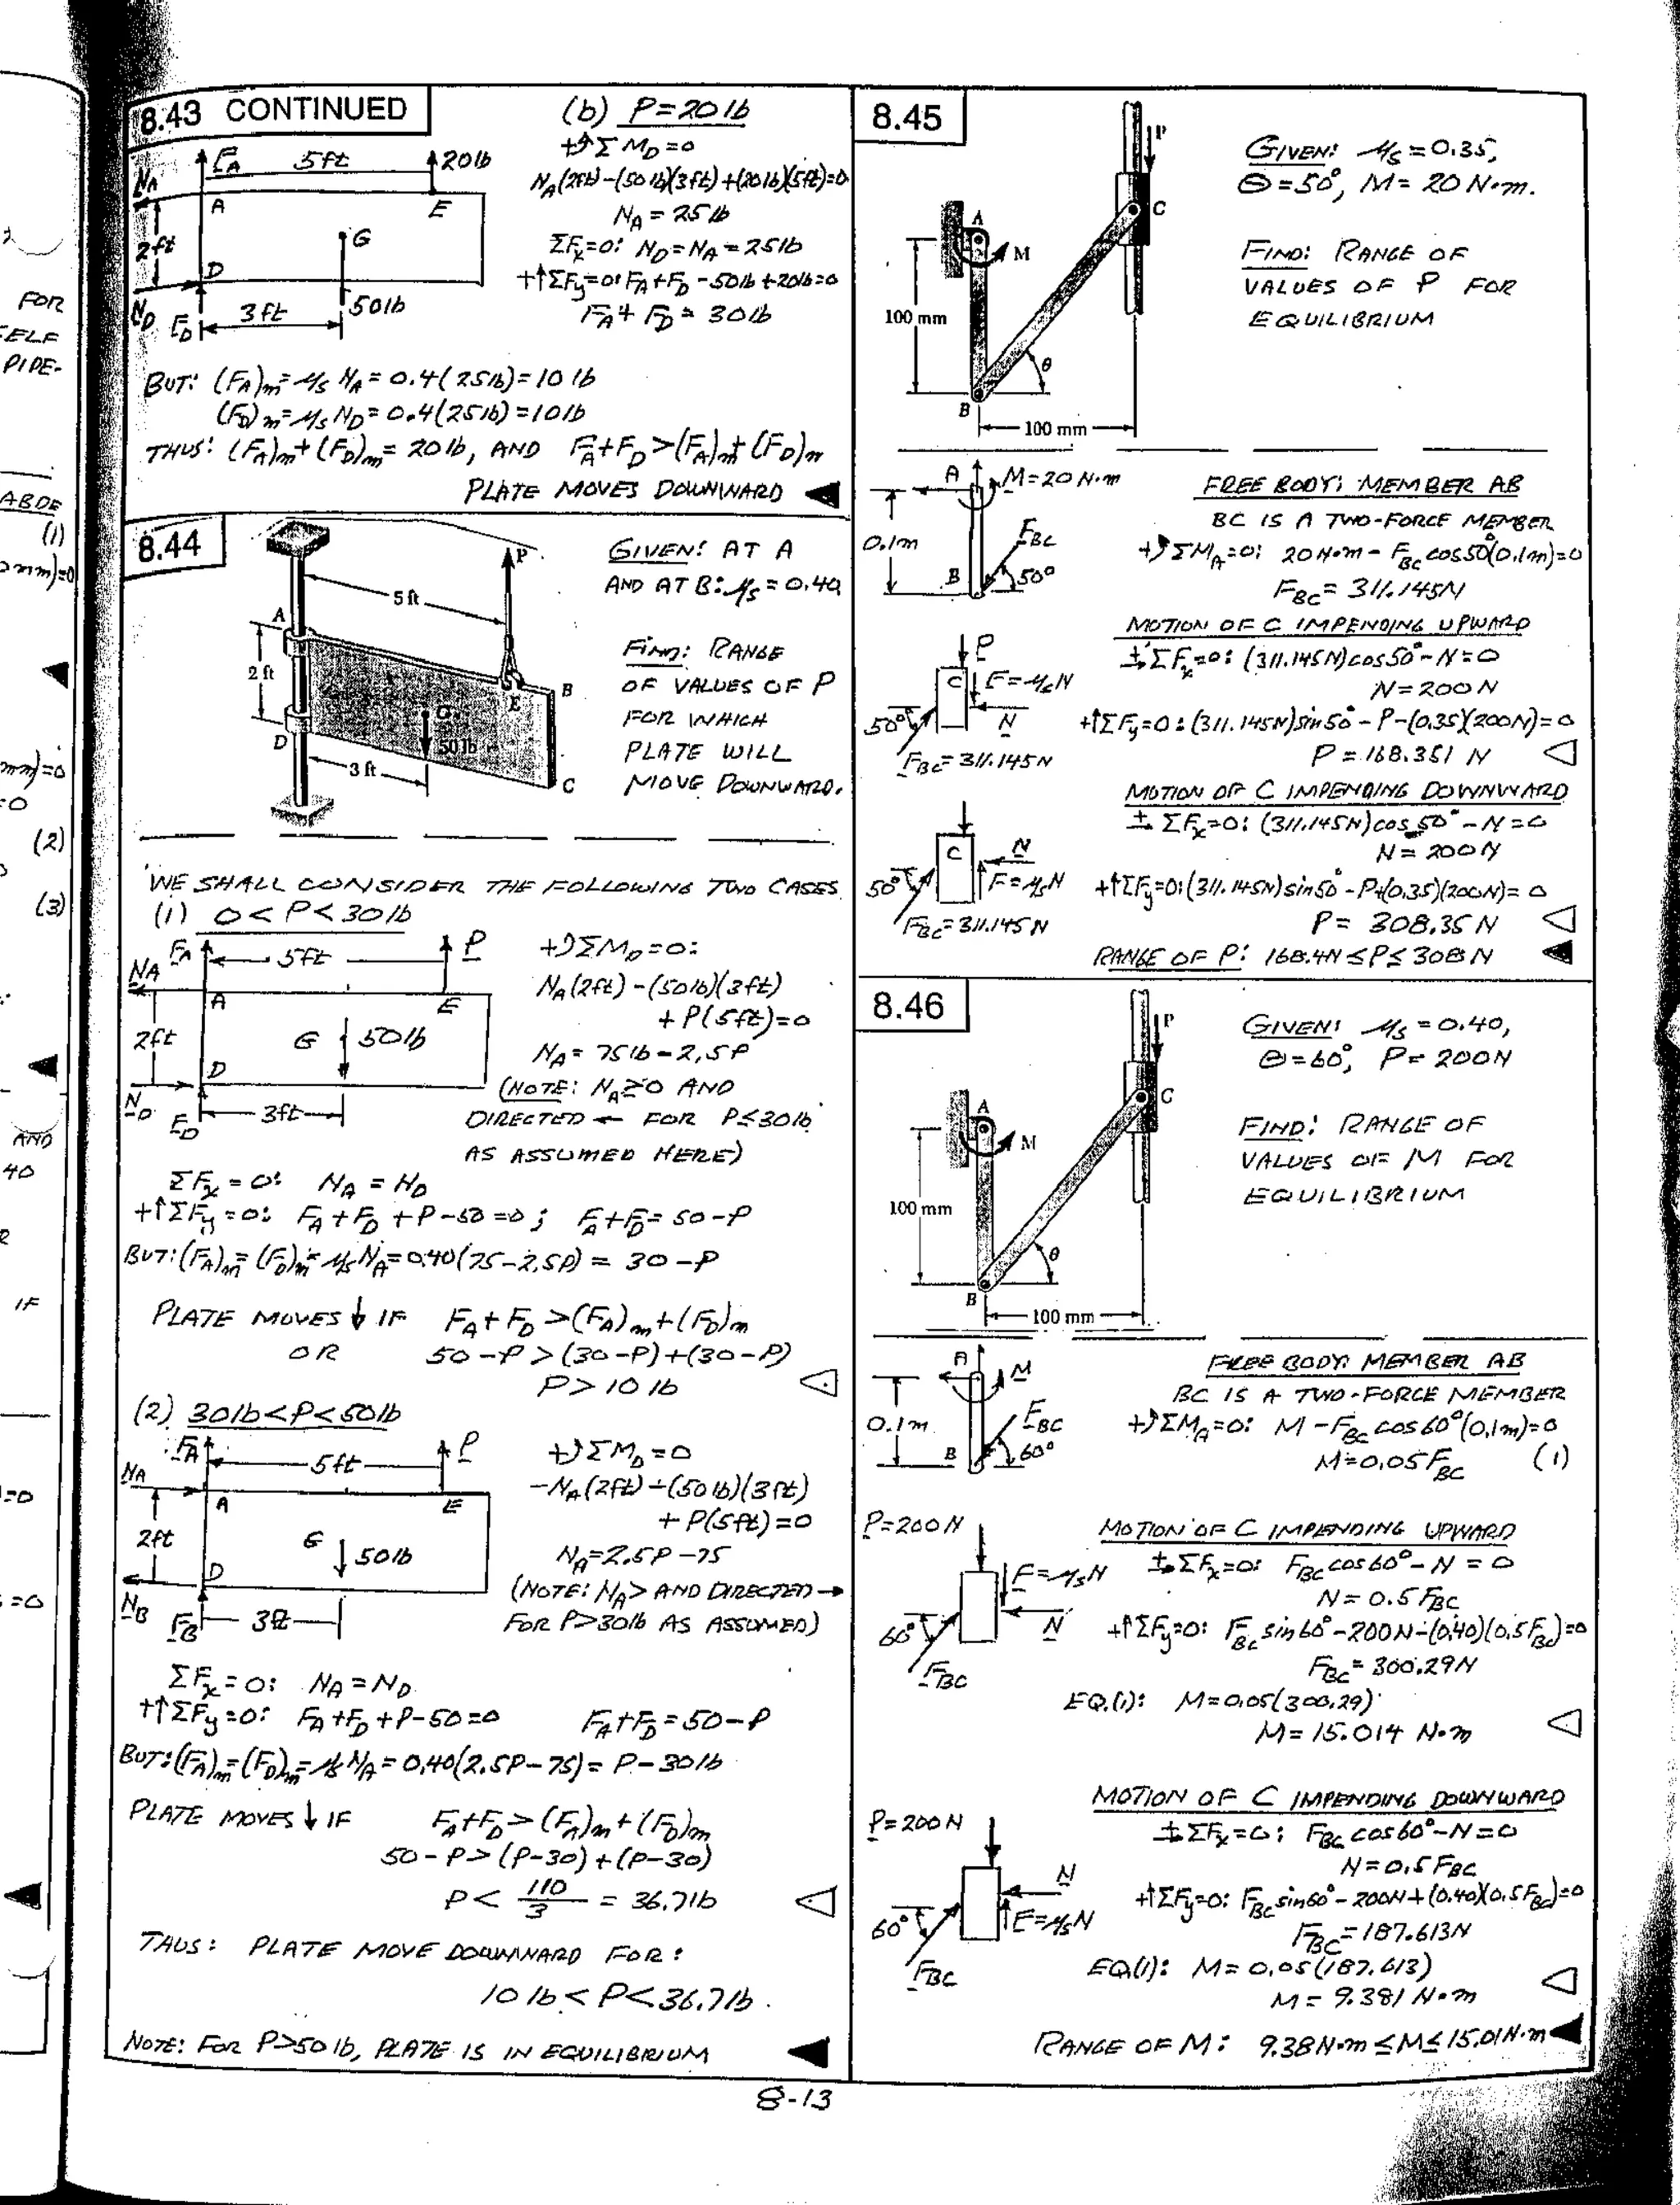 FOR
SELF
PIPE-
ABDE
(1)
(2)
(3)
AND
40
IF
8.43 CONTINUED
(b) P=20 lb
+↺ΣM_D=0
N_A(2ft)-(50 lb)(3ft)+(20 lb)(5ft)=0
N_A = 25 lb
ΣF_x=0: N_D=N_A=25 lb
+↑ΣF_y=0: F_A+F_D-50 lb+20 lb=0
F_A+F_D=30 lb
F_A 5ft 20 lb
N_A A E
2ft G
D
N_D F_D 3ft 50 lb
BUT: (F_A)_m=μ_s N_A=0.4(25 lb)=10 lb
(F_D)_m=μ_s N_D=0.4(25 lb)=10 lb
THUS: (F_A)_m+(F_D)_m=20 lb, AND F_A+F_D>(F_A)_m+(F_D)_m
PLATE MOVES DOWNWARD
8.44
GIVEN: AT A
AND AT B: μ_s=0.40
FIND: RANGE
OF VALUES OF P
FOR WHICH
PLATE WILL
MOVE DOWNWARD.
P
5 ft
A
2 ft
B
E
G
D
50 lb
3 ft
C
WE SHALL CONSIDER THE FOLLOWING TWO CASES
(1) 0<P<30 lb
F_A 5ft P
N_A A E
2ft G 50 lb
D
N_D F_D 3ft
+↺ΣM_D=0:
N_A(2ft)-(50 lb)(3ft)
+P(5ft)=0
N_A=75 lb-2.5P
(NOTE: N_A≥0 AND
DIRECTED ← FOR P≤30 lb
AS ASSUMED HERE)
ΣF_x=0: N_A=N_D
+↑ΣF_y=0: F_A+F_D+P-50=0; F_A+F_D=50-P
BUT: (F_A)_m=(F_D)_m=μ_s N_A=0.40(75-2.5P)=30-P
PLATE MOVES ↓ IF F_A+F_D>(F_A)_m+(F_D)_m
OR 50-P>(30-P)+(30-P)
P>10 lb
(2) 30 lb<P<50 lb
F_A 5ft P
N_A A E
2ft G 50 lb
D
N_B F_B 3ft
+↺ΣM_D=0
-N_A(2ft)-(50 lb)(3ft)
+P(5ft)=0
N_A=2.5P-75
(NOTE: N_A> AND DIRECTED →
FOR P>30 lb AS ASSUMED)
ΣF_x=0: N_A=N_D
+↑ΣF_y=0: F_A+F_D+P-50=0 F_A+F_D=50-P
BUT: (F_A)_m=(F_D)_m=μ_s N_A=0.40(2.5P-75)=P-30 lb
PLATE MOVES ↓ IF F_A+F_D>(F_A)_m+(F_D)_m
50-P>(P-30)+(P-30)
P<110/3=36.7 lb
THUS: PLATE MOVE DOWNWARD FOR:
10 lb<P<36.7 lb.
NOTE: FOR P>50 lb, PLATE IS IN EQUILIBRIUM
8.45
P
C
A
M
100 mm
θ
B
100 mm
GIVEN: μ_s=0.35,
θ=50°, M=20 N·m.
FIND: RANGE OF
VALUES OF P FOR
EQUILIBRIUM
A M=20 N·m
0.1m F_BC
B 50°
FREE BODY: MEMBER AB
BC IS A TWO-FORCE MEMBER
+↺ΣM_A=0: 20 N·m-F_BC cos50°(0.1m)=0
F_BC=311.145N
MOTION OF C IMPENDING UPWARD
P
C F=μ_sN
50° N
F_BC=311.145N
+→ΣF_x=0: (311.145N)cos50°-N=0
N=200N
+↑ΣF_y=0: (311.145N)sin50°-P-(0.35)(200N)=0
P=168.351 N
MOTION OF C IMPENDING DOWNWARD
C N
50° F=μ_sN
F_BC=311.145N
+→ΣF_x=0: (311.145N)cos50°-N=0
N=200N
+↑ΣF_y=0: (311.145N)sin50°-P+(0.35)(200N)=0
P=308.35 N
RANGE OF P: 168.4N≤P≤308N
8.46
P
C
A
M
100 mm
θ
B
100 mm
GIVEN: μ_s=0.40,
θ=60°, P=200N
FIND: RANGE OF
VALUES OF M FOR
EQUILIBRIUM
A M
0.1m F_BC
B 60°
FREE BODY: MEMBER AB
BC IS A TWO-FORCE MEMBER
+↺ΣM_A=0: M-F_BC cos60°(0.1m)=0
M=0.05F_BC (1)
P=200N
F=μ_sN
60° N
F_BC
MOTION OF C IMPENDING UPWARD
+→ΣF_x=0: F_BC cos60°-N=0
N=0.5F_BC
+↑ΣF_y=0: F_BC sin60°-200N-(0.40)(0.5F_BC)=0
F_BC=300.29N
EQ.(1): M=0.05(300.29)
M=15.014 N·m
P=200N
N
60° F=μ_sN
F_BC
MOTION OF C IMPENDING DOWNWARD
+→ΣF_x=0: F_BC cos60°-N=0
N=0.5F_BC
+↑ΣF_y=0: F_BC sin60°-200N+(0.40)(0.5F_BC)=0
F_BC=187.613N
EQ.(1): M=0.05(187.613)
M=9.381 N·m
RANGE OF M: 9.38N·m≤M≤15.01N·m
8-13